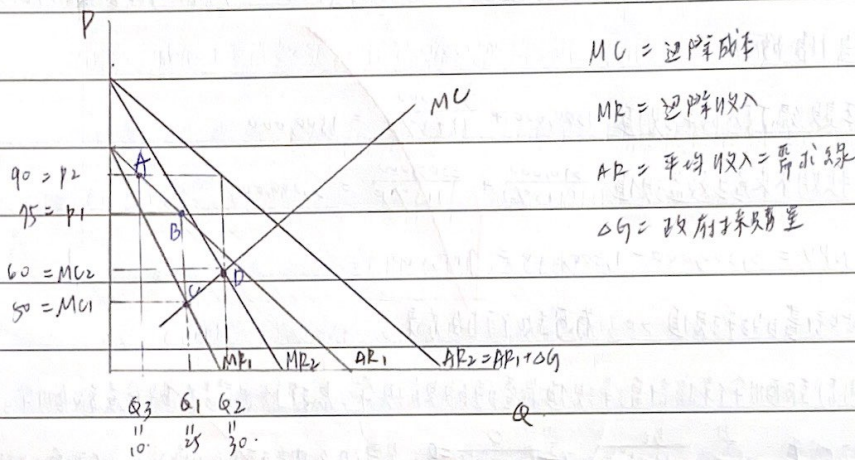 P
MC
MC = 边际成本
MR = 边际收入
AR = 平均收入 = 需求线
ΔG = 政府採購量
90 = P2
75 = P1
60 = MC2
50 = MC1
A
B
C
D
MR1 MR2 AR1 AR2 = AR1 + ΔG
Q3 Q1 Q2 Q
" " "
10. 25 30.